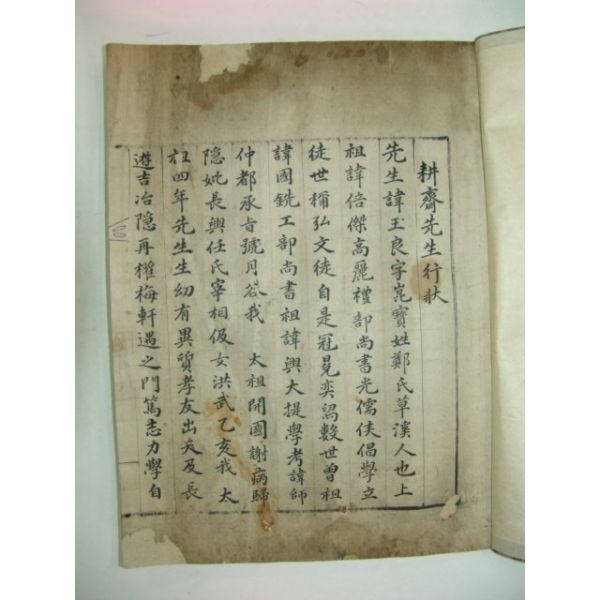 耕齋先生行狀
先生諱玉良字崑寶姓鄭氏草溪人也上
祖諱倍傑高麗禮部尚書光儒侯倡學立
徒世稱弘文徒自是冠冕奕舃數世曾祖
諱國銑工部尚書祖諱興大提學考諱師
仲都承旨號月谷我 太祖開國謝病歸
隐妣長興任氏宰相伋女洪武乙亥我 太
祖四年先生生幼有異質孝友出天及長
遊吉冶隐再權梅軒遇之門篤志力學自